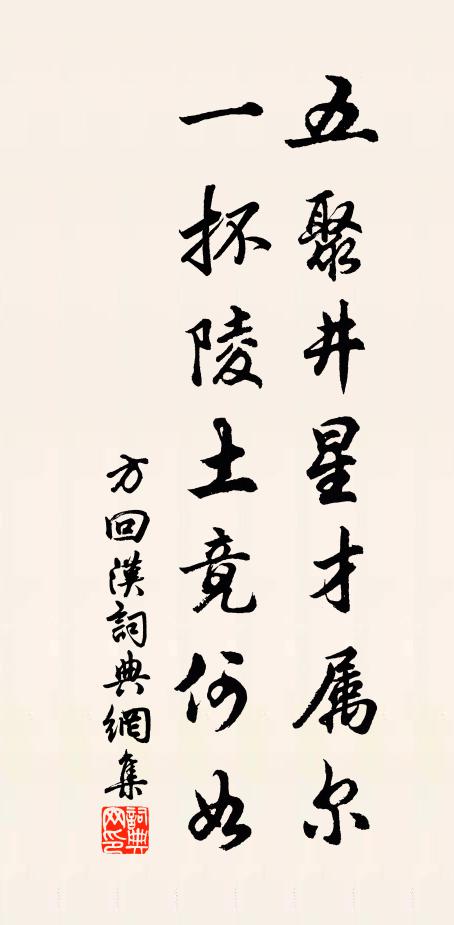 五聚井星才属尔
一抔陵土竟何如
方回漢詞典網集
詞典網印